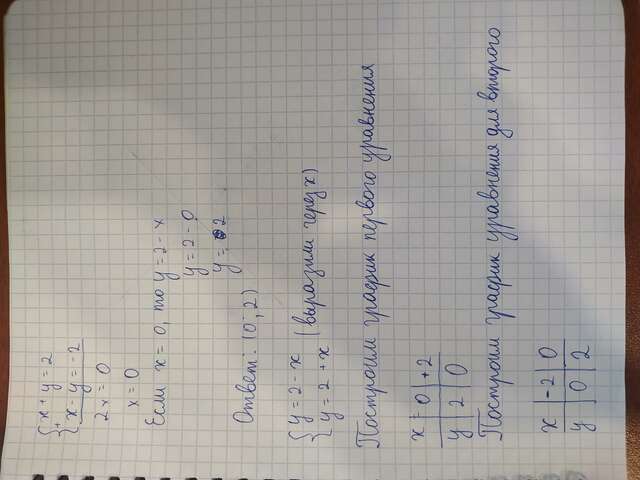 { x + y = 2
+ x - y = -2
2x = 0
x = 0
Если x = 0, то y = 2 - x
y = 2 - 0
y = 2
Ответ: (0; 2)
{ y = 2 - x (выразили через x)
y = 2 + x
Построим график первого уравнения
x | 0 | +2
y | 2 | 0
Построим график уравнения для второго
x | -2 | 0
y | 0 | 2